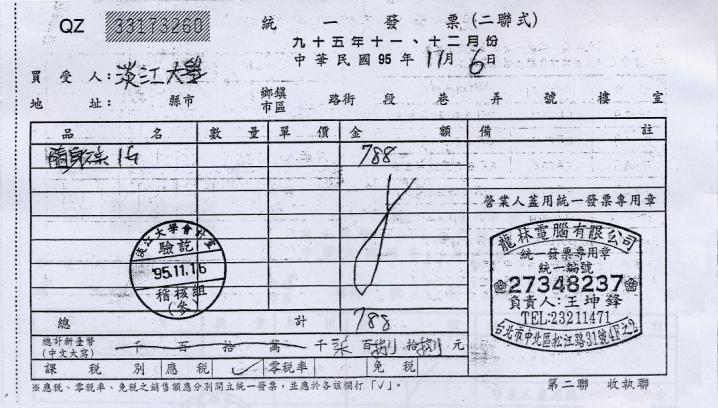 QZ 33173260
統一發票(二聯式)
九十五年十一、十二月份
中華民國95年11月6日
買受人:淡江大學
地址: 縣市 鄉鎮市區 路街 段 巷 弄 號 樓 室
品名 數量 單價 金額 備註
隨身碟 1G 788
營業人蓋用統一發票專用章
淡江大學會計室
驗訖
'95.11.16
稽核組
龍林電腦有限公司
統一發票專用章
統一編號
27348237
負責人:王坤鋒
TEL:23211471
台北市中北區松江路31號4F之2
總計 788
總計新臺幣(中文大寫) 千 百 拾 萬 千 柒 百 捌 拾 捌 元
課稅別 應稅 ✓ 零稅率 免稅
※應稅、零稅率、免稅之銷售額應分別開立統一發票,並應於各該欄打「√」。
第二聯 收執聯